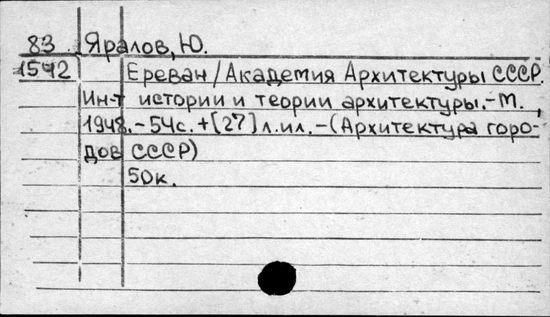 83 Яралов, Ю.
1542 Ереван/Академия Архитектуры СССР.
Ин-т истории и теории архитектуры.-М.,
1948.-54с.+[27]л.ил.-(Архитектура горо-
дов СССР)
50к.